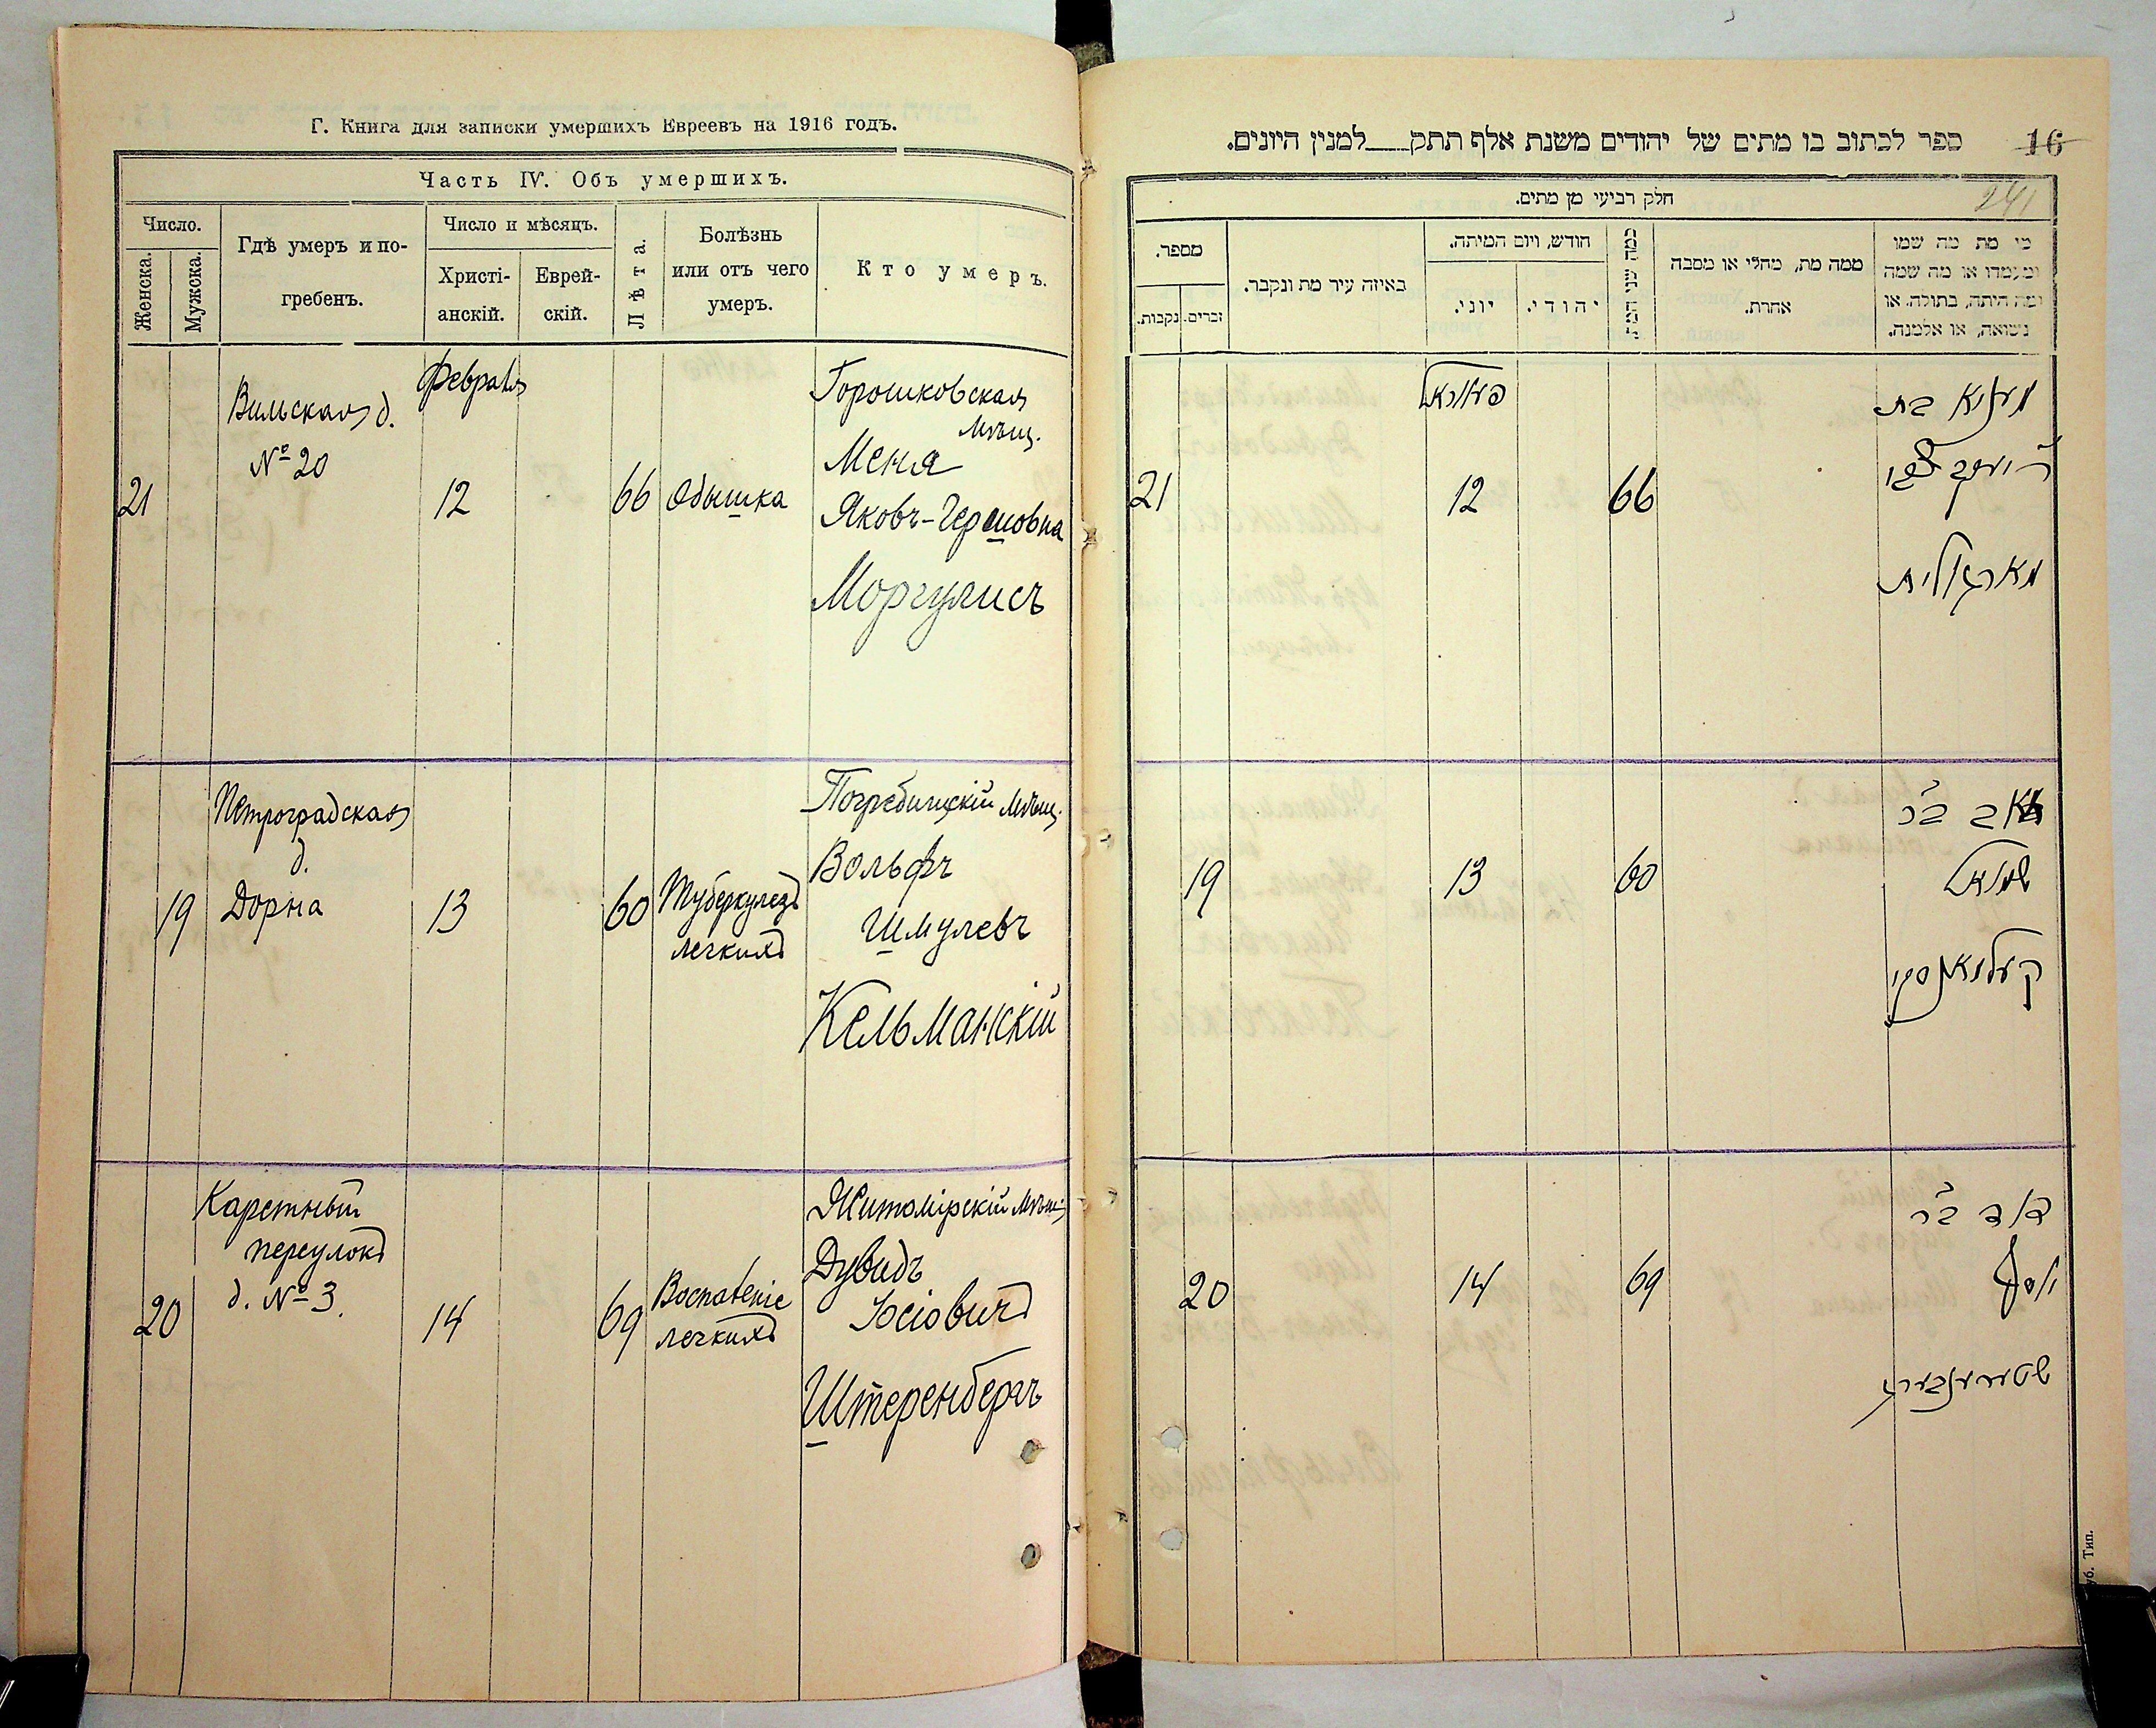 Г. Книга для записки умершихъ Евреевъ на 1916 годъ.
Часть IV. Объ умершихъ.
Число.
Женска.
Мужска.
Гдѣ умеръ и по-
гребенъ.
Число и мѣсяцъ.
Христі-
анскій.
Еврей-
скій.
Лѣта.
Болѣзнь
или отъ чего
умеръ.
Кто умеръ.
Вильская д.
№ 20
Февраля
21
12
66
Одышка
Горошковская
мѣщ.
Меня
Яковъ-Гершовна
Моргулисъ
Петроградская
д.
Дорна
19
13
60
Туберкулезъ
легкихъ
Погребищскій мѣщ.
Вольфъ
Шмулевъ
Кельманскій
Каретный
переулокъ
д. № 3.
20
14
69
Воспаленіе
легкихъ
Житомірскій мѣщ.
Дувидъ
Іосіовичъ
Штеренбергъ
ספר לכתוב בו מתים של יהודים משנת אלף תתק למנין היונים.
16
241
חלק רביעי מן מתים.
מי מת מה שמו
ומעמדו או מה שמה
ומה היתה, בתולה, או
נשואה, או אלמנה.
ממה מת, מחלי או מסבה
אחרת.
כמה שני המת
חודש, ויום המיתה.
יהודי.
יוני.
באיזה עיר מת ונקבר.
מספר.
זכרים.
נקבות.
מעניא בת
ר׳ יעקב הערש
מארגאליס
פעוראל
66
12
21
וואלף ב״ר
שמואל
קעלמאנסקי
60
13
19
דוד ב״ר
יוסף
שטערענבערג
69
14
20
уб. Тип.